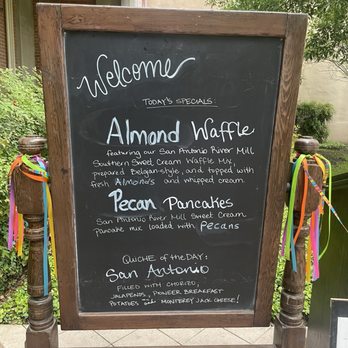 Welcome
TODAY'S SPECIALS:
Almond Waffle
featuring our San Antonio River Mill
Southern Sweet Cream Waffle Mix,
prepared Belgian-style, and topped with
fresh Almonds and whipped cream.
Pecan Pancakes
San Antonio River Mill Sweet Cream
Pancake mix loaded with Pecans
QUICHE of the DAY:
San Antonio
FILLED WITH CHORIZO,
JALAPEÑOS, PIONEER BREAKFAST
POTATOES and MONTEREY JACK CHEESE!